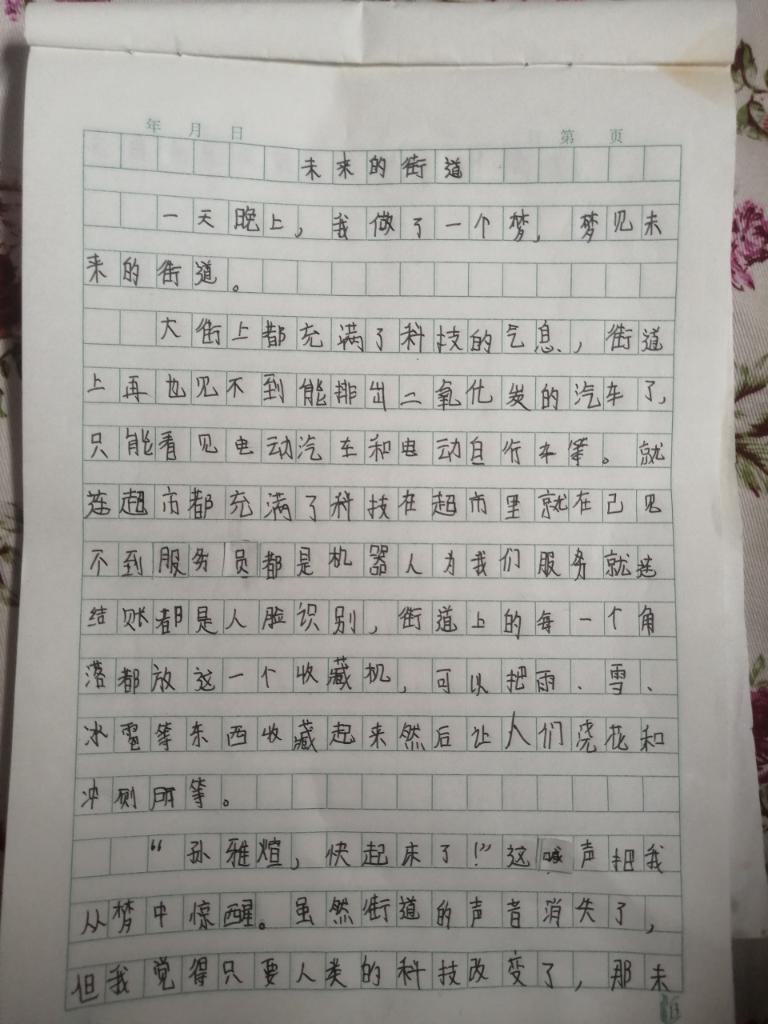 年 月 日 第 页
未来的街道
一天晚上，我做了一个梦，梦见未
来的街道。
大街上都充满了科技的气息，街道
上再也见不到能排出二氧化炭的汽车了，
只能看见电动汽车和电动自行车等。就
连超市都充满了科技在超市里就在己见
不到服务员都是机器人为我们服务就连
结账都是人脸识别，街道上的每一个角
落都放这一个收藏机，可以把雨、雪、
冰雹等东西收藏起来然后让人们浇花和
冲侧所等。
“孙雅煊，快起床了！”这喊声把我
从梦中惊醒。虽然街道的声音消失了，
但我觉得只要人类的科技改变了，那未